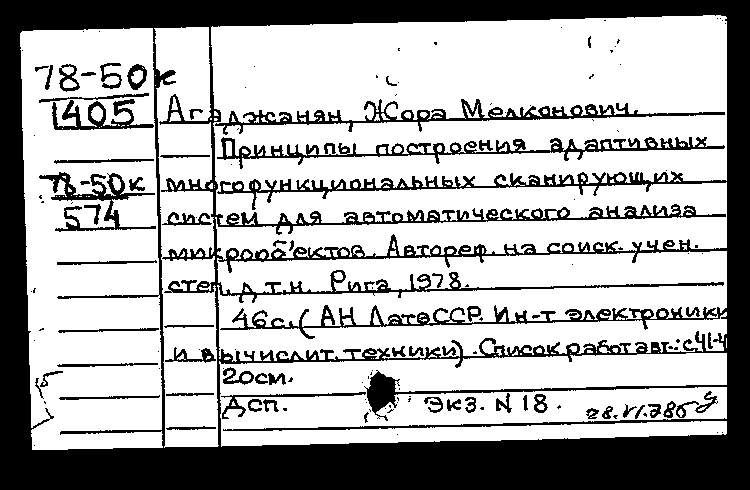 78-50к
1405
Агаджанян, Жора Мелконович.
Принципы построения адаптивных
78-50к
многофункциональных сканирующих
574
систем для автоматического анализа
микрообъектов. Автореф. на соиск. учен.
степ. д.т.н. Рига, 1978.
46с. (АН ЛатвССР. Ин-т электроники
и вычислит. техники). Список работ авт.: с.41-4
20см.
Дсп. Экз. N 18.